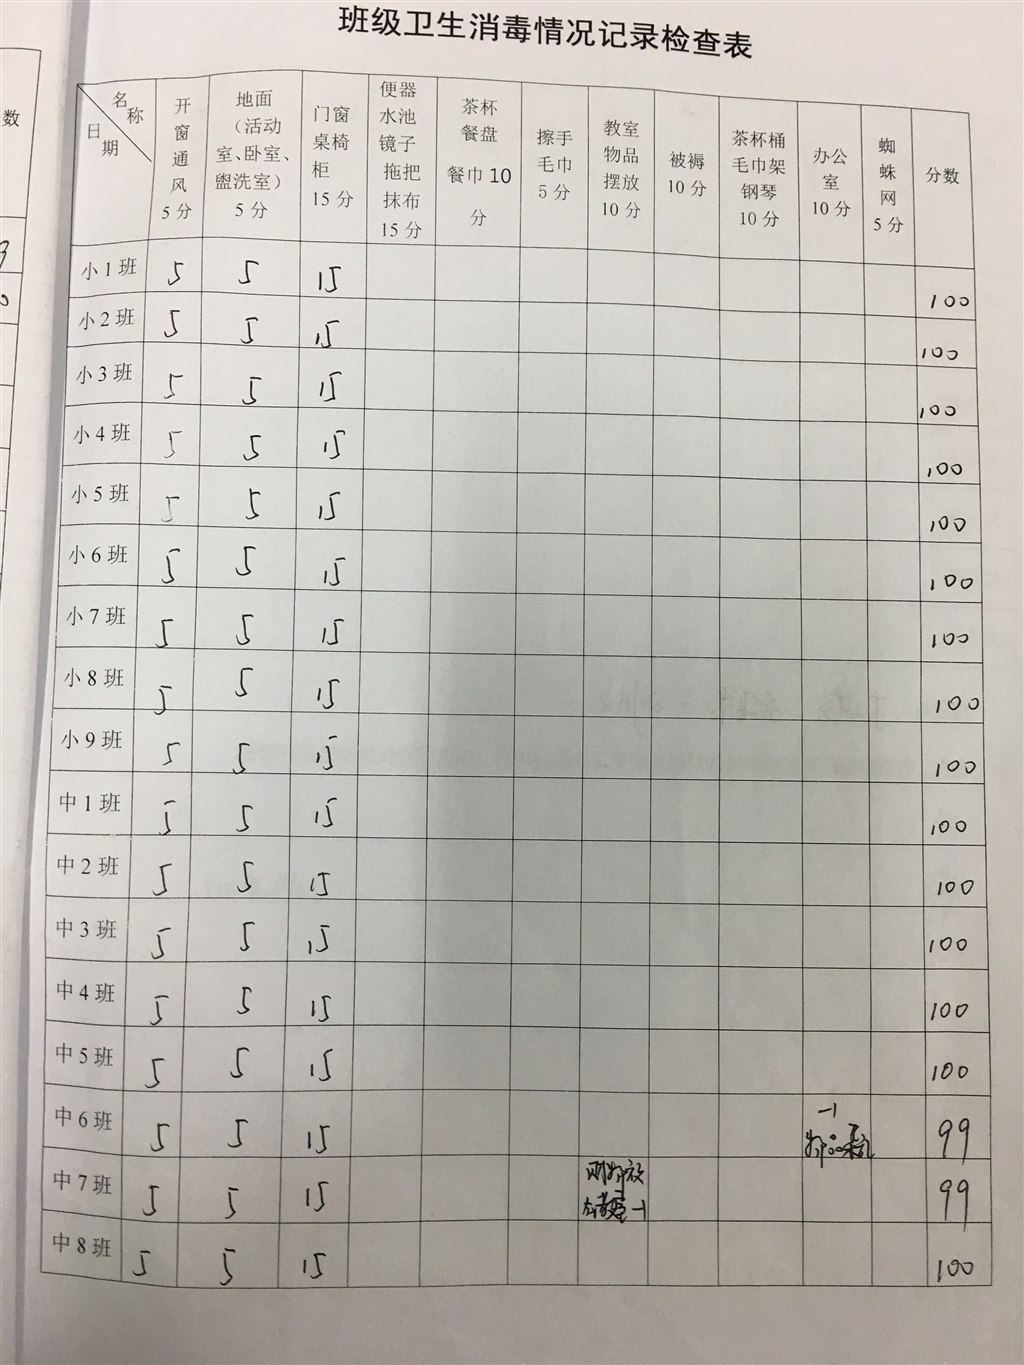 班级卫生消毒情况记录检查表
数
名称
日期
开窗通风
5分
地面
（活动
室、卧室、
盥洗室）
5分
门窗
桌椅
柜
15分
便器
水池
镜子
拖把
抹布
15分
茶杯
餐盘
餐巾10
分
擦手
毛巾
5分
教室
物品
摆放
10分
被褥
10分
茶杯桶
毛巾架
钢琴
10分
办公
室
10分
蜘蛛网
5分
分数
小1班 5 5 15 100
小2班 5 5 15 100
小3班 5 5 15 100
小4班 5 5 15 100
小5班 5 5 15 100
小6班 5 5 15 100
小7班 5 5 15 100
小8班 5 5 15 100
小9班 5 5 15 100
中1班 5 5 15 100
中2班 5 5 15 100
中3班 5 5 15 100
中4班 5 5 15 100
中5班 5 5 15 100
中6班 5 5 15 -1 99
中7班 5 5 15 -1 99
中8班 5 5 15 100